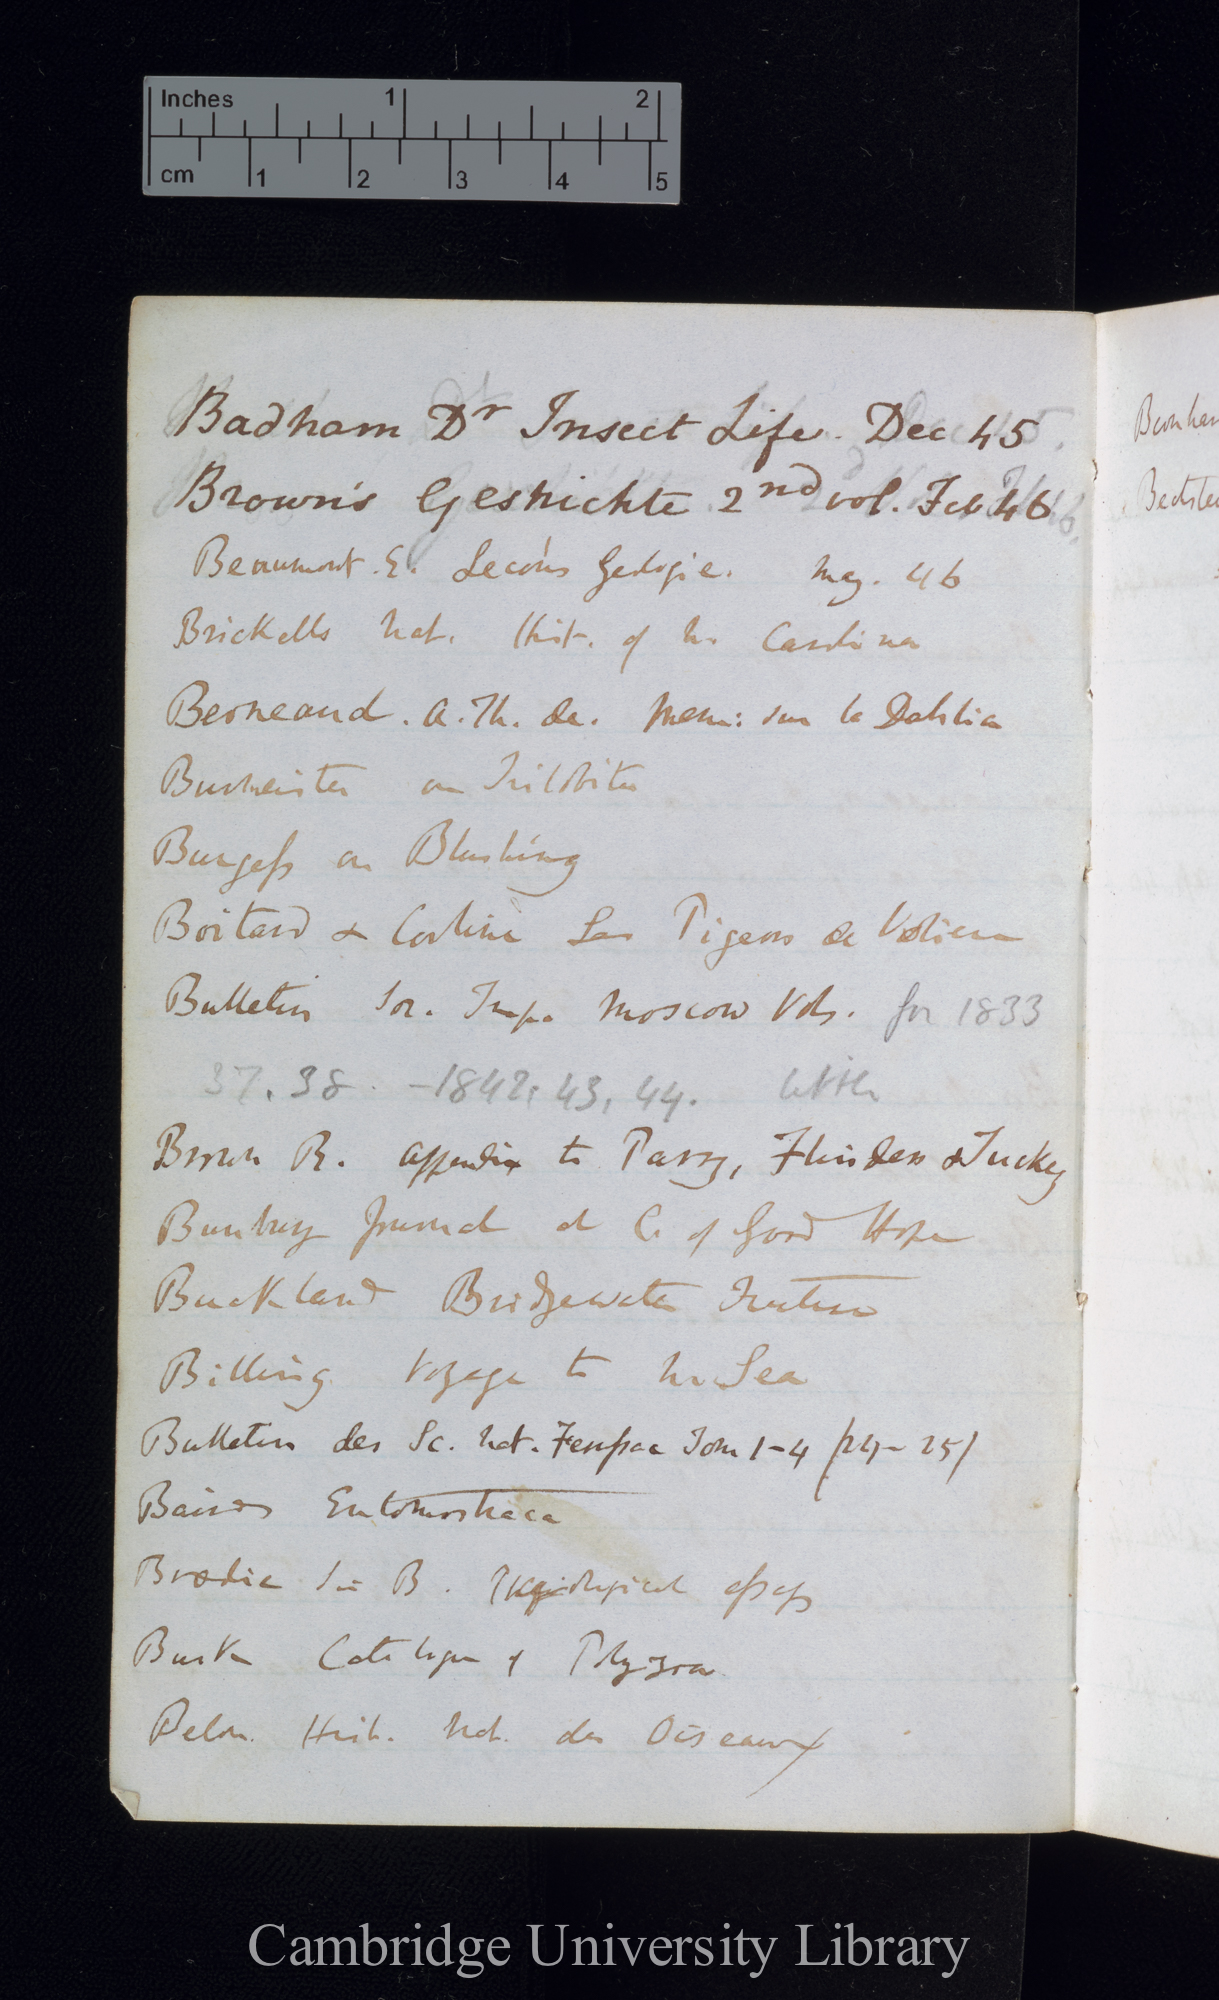 Inches 1 2
cm 1 2 3 4 5
Badham Dr Insect Life. Dec 45
Brown's Geshichte 2nd vol. Feb 46
Beaumont. E. Lecons Geologie. May. 46
Brickells Nat. Hist. of N. Carolina
Berneaud. A. Th. de. Mem: sur le Dahlia
Burmeister on Trilobites
Burgess on Blushing
Boitard & Corbie Les Pigeons de Voliere
Bulletin Soc. Imp. Moscow Vols. for 1833
37. 38. - 1842, 43, 44.
Brown R. appendix to Parry, Flinders & Tuckey
Bunbury Journal at C. of Good Hope
Buckland Bridgewater Treatise
Billing Voyage to N. Sea
Bulletin des Sc. Nat. Ferussac Tom 1-4 (24-25)
Bairds Entomostraca
Brodie Sir B. essays
Busk Catalogue of Polyzoa
Belon. Hist. Nat. des Oiseaux
Bronham
Bechste
Cambridge University Library